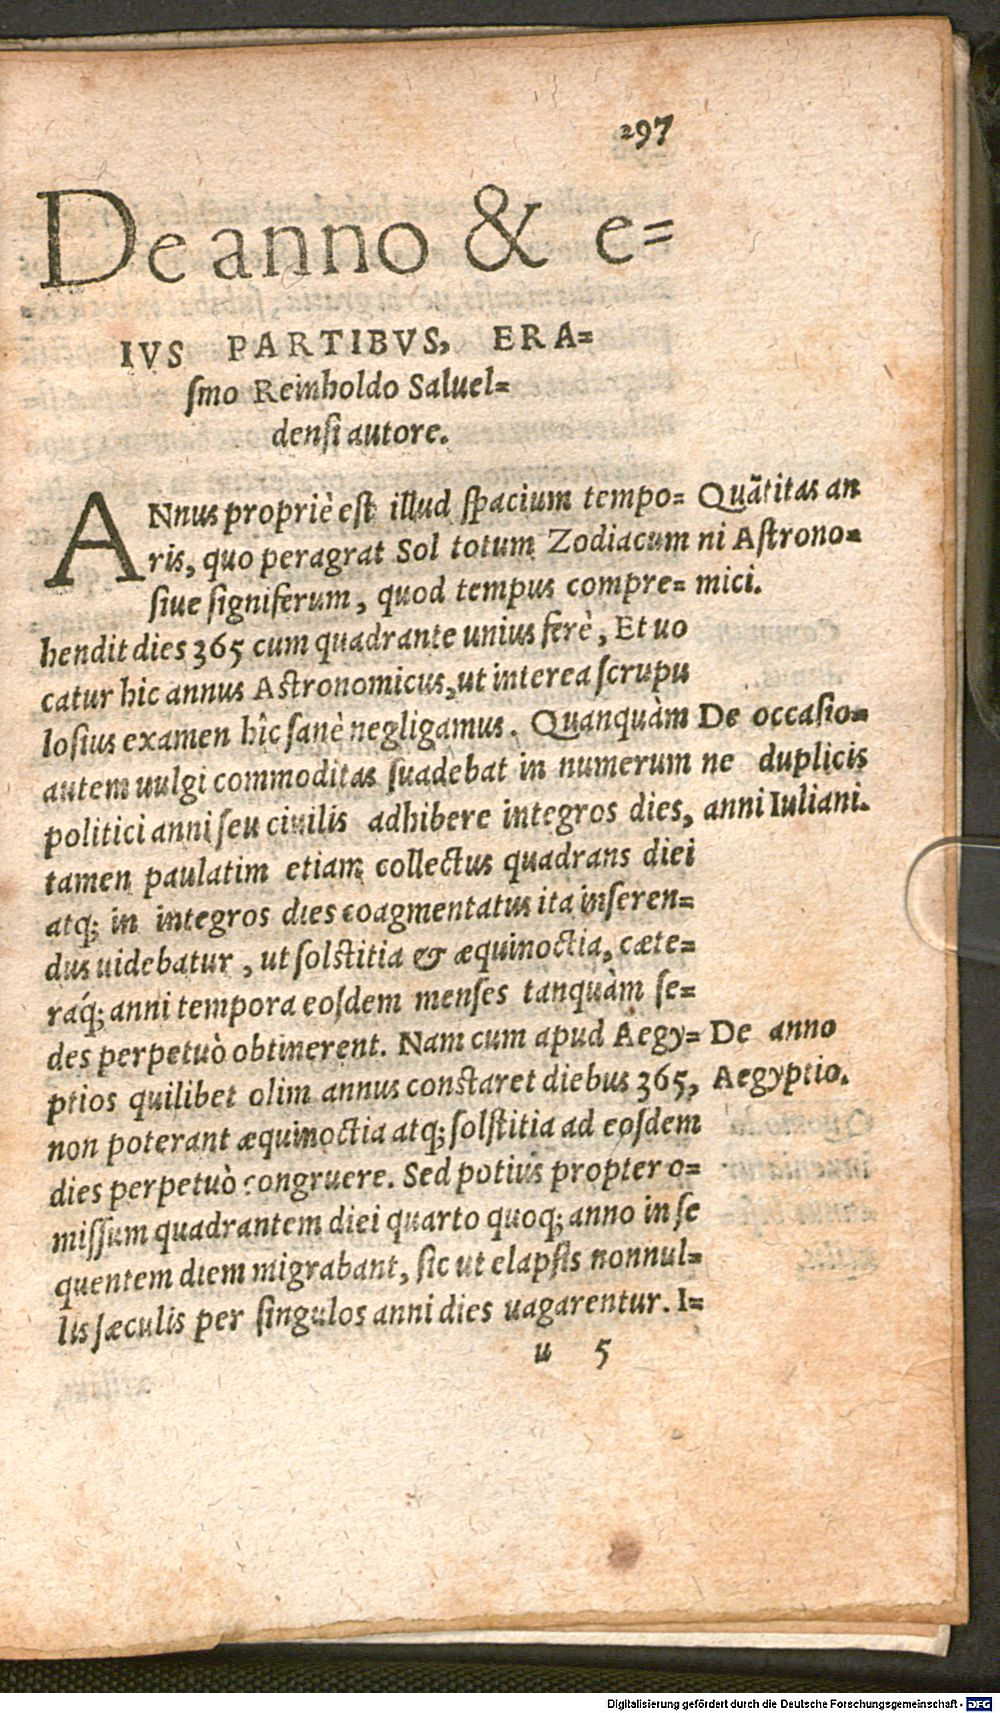 297
De anno & e=
IVS PARTIBVS, ERA=
ſmo Reinholdo Saluel=
denſi autore.
ANnus propriè eſt illud ſpacium tempo=
ris, quo peragrat Sol totum Zodiacum
ſiue ſigniferum, quod tempus compre=
hendit dies 365 cum quadrante unius ferè, Et uo
catur hic annus Aſtronomicus, ut interea ſcrupu
loſius examen hîc ſanè negligamus. Quanquàm
autem uulgi commoditas ſuadebat in numerum
politici anni ſeu ciuilis adhibere integros dies,
tamen paulatim etiam collectus quadrans diei
atq; in integros dies coagmentatus ita inſeren=
dus uidebatur, ut solſtitia & æquinoctia, cæte=
raq́; anni tempora eoſdem menſes tanquàm ſe=
des perpetuò obtinerent. Nam cum apud Aegy=
ptios quilibet olim annus conſtaret diebus 365,
non poterant æquinoctia atq; ſolſtitia ad eoſdem
dies perpetuò congruere. Sed potius propter o=
miſſum quadrantem diei quarto quoq; anno in ſe
quentem diem migrabant, ſic ut elapſis nonnul=
lis ſæculis per ſingulos anni dies uagarentur. I=
u 5
Quãtitas an
ni Aſtrono=
mici.
De occaſio=
ne duplicis
anni Iuliani.
De anno
Aegyptio.
Digitalisierung gefördert durch die Deutsche Forschungsgemeinschaft - DFG